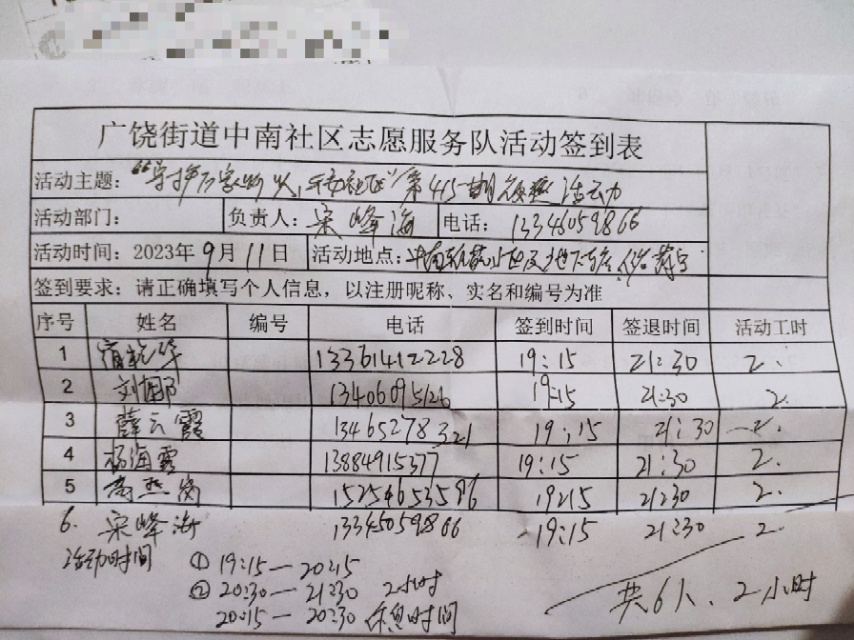 广饶街道中南社区志愿服务队活动签到表
活动主题：“守护万家灯火，平安社区”第415期夜巡活动
活动部门： 负责人：宋峰海 电话：13346059866
活动时间：2023年9月11日 活动地点：中南
签到要求：请正确填写个人信息，以注册昵称、实名和编号为准
序号 姓名 编号 电话 签到时间 签退时间 活动工时
1 13361412228 19:15 21:30 2.
2 刘国 13406095126 19:15 21:30 2.
3 薛云霞 13465278321 19:15 21:30 2.
4 杨海霞 13884915377 19:15 21:30 2.
5 高燕 15254653586 19:15 21:30 2.
6. 宋峰海 13345059866 19:15 21:30 2.
活动时间 ① 19:15— 20:15
② 20:30— 21:30 2小时
20:15— 20:30 休息时间
共6人、2小时